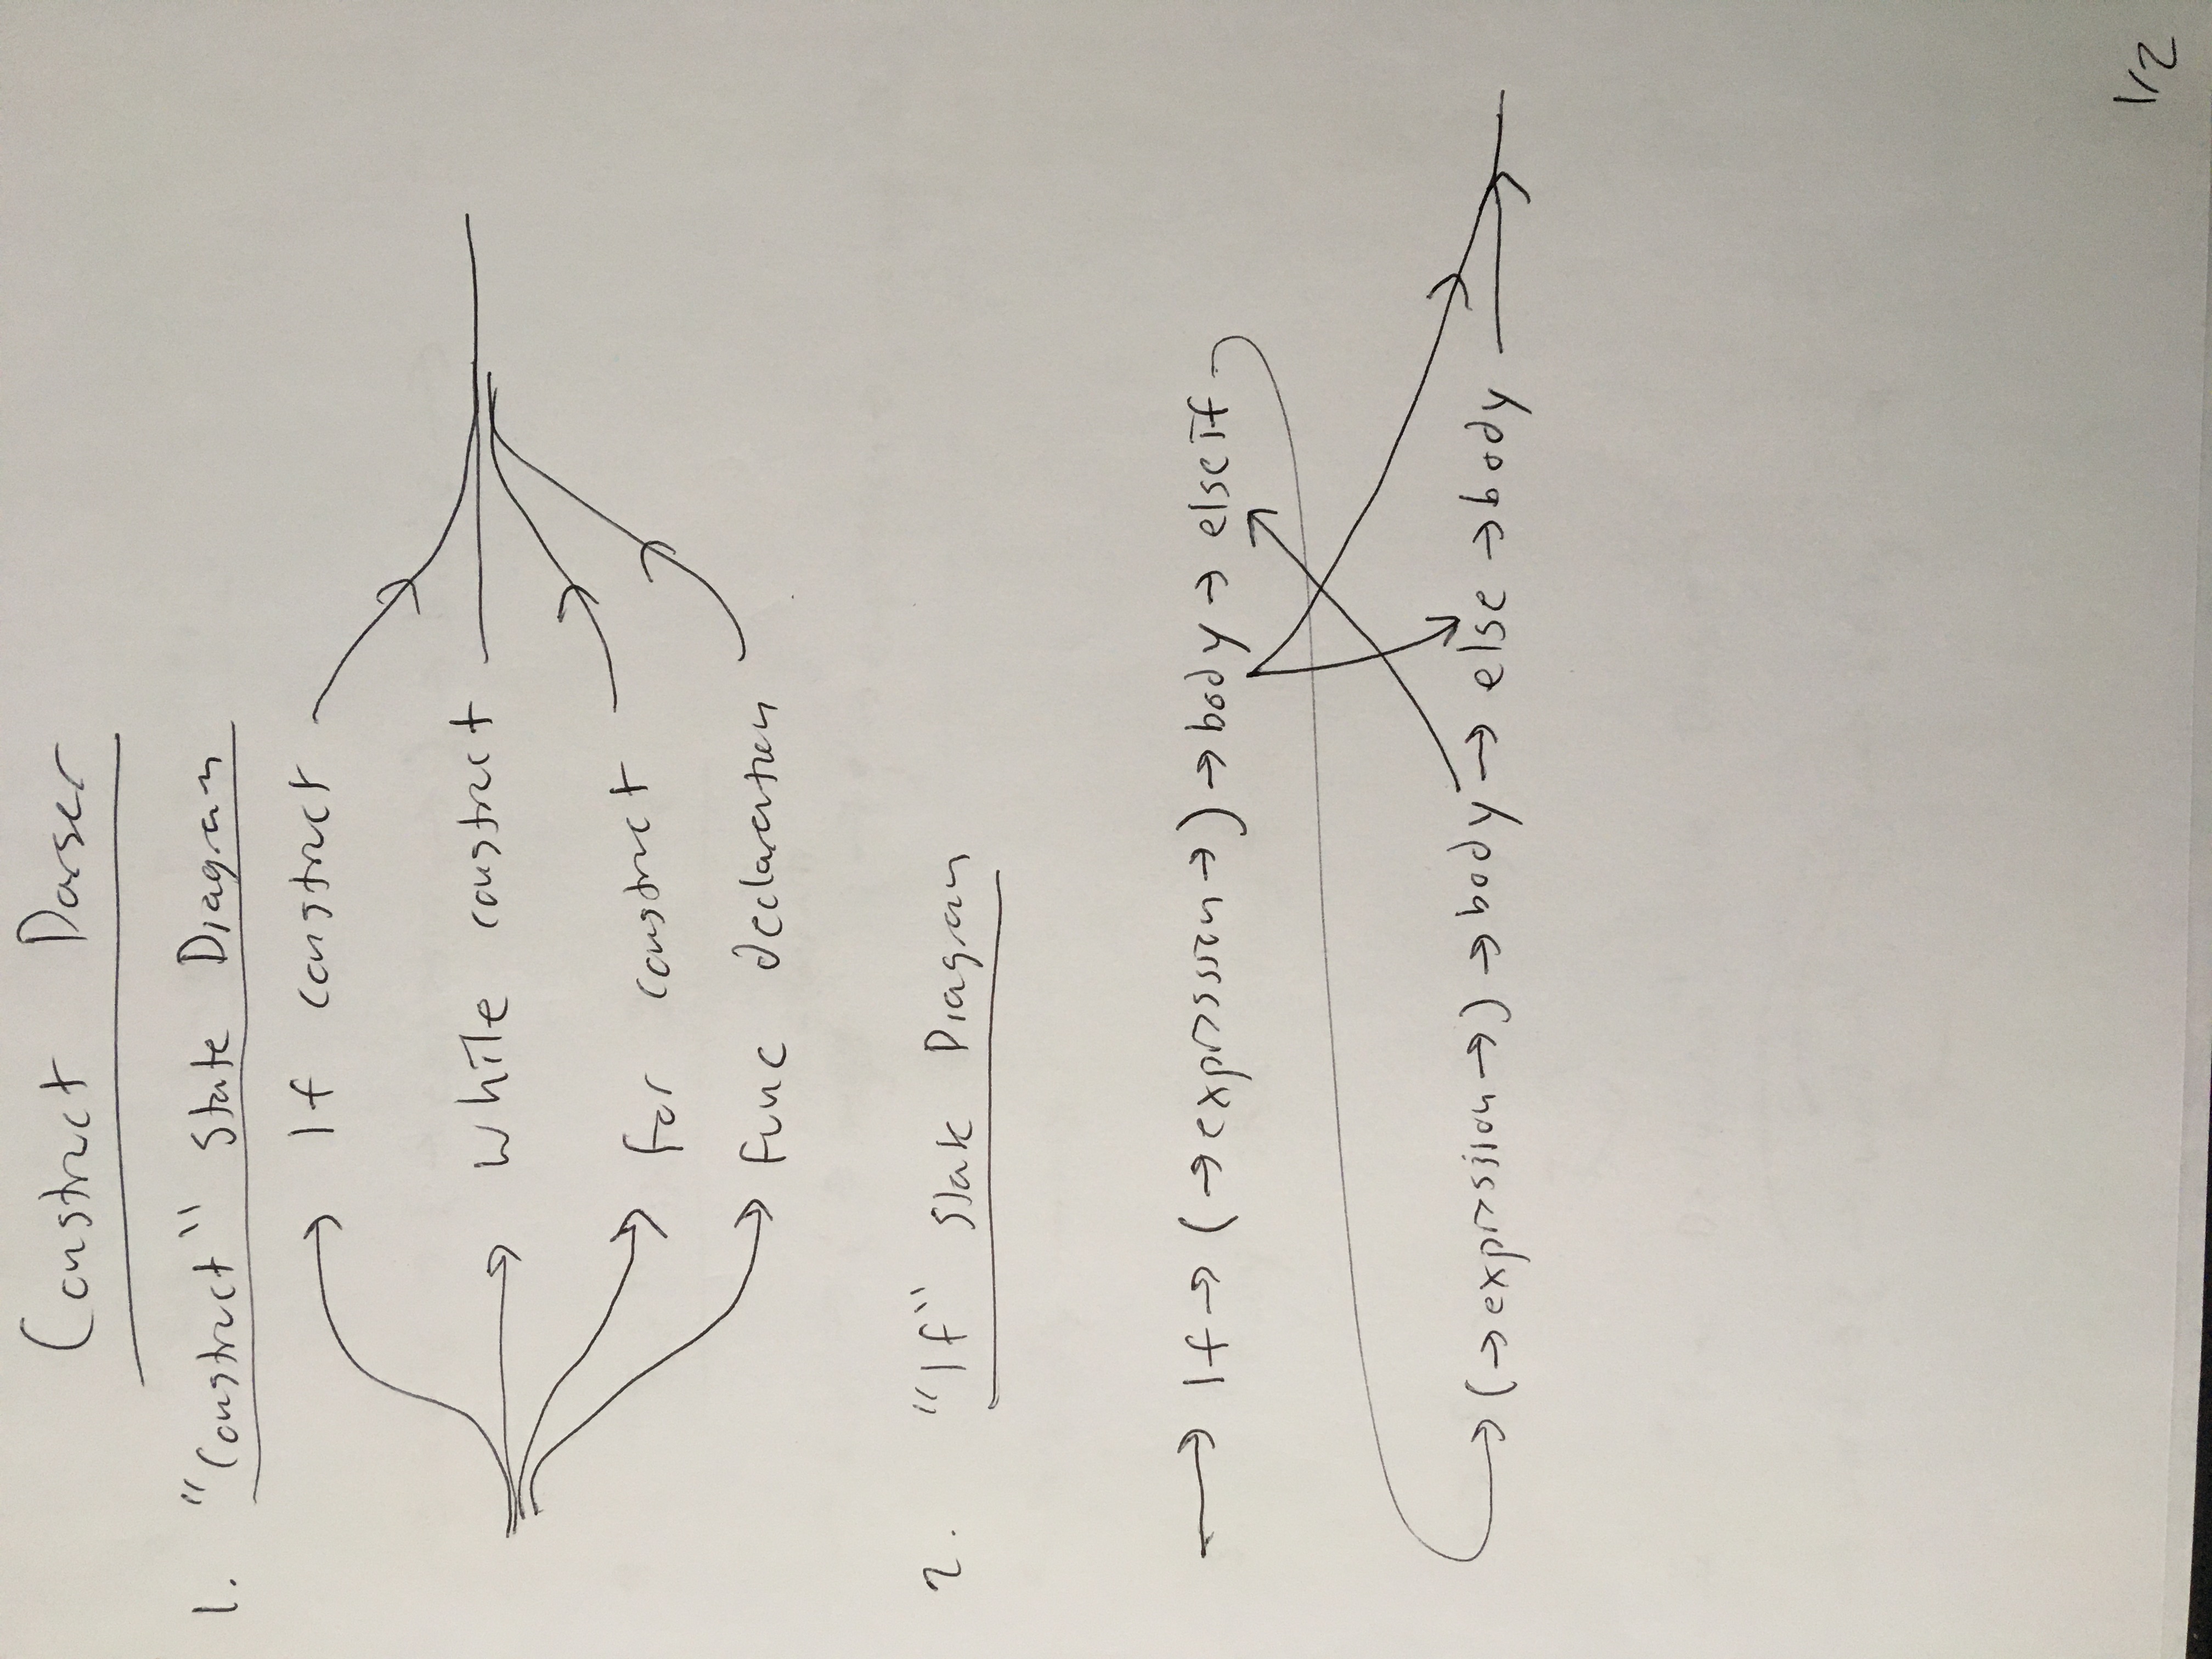 Construct Parser
1. "Construct" State Diagram
If construct
while construct
for construct
func declaration
2. "If" State Diagram
→ If → ( → expression → ) → body → elseif
→ ( → expression → ) → body → else → body
1/2